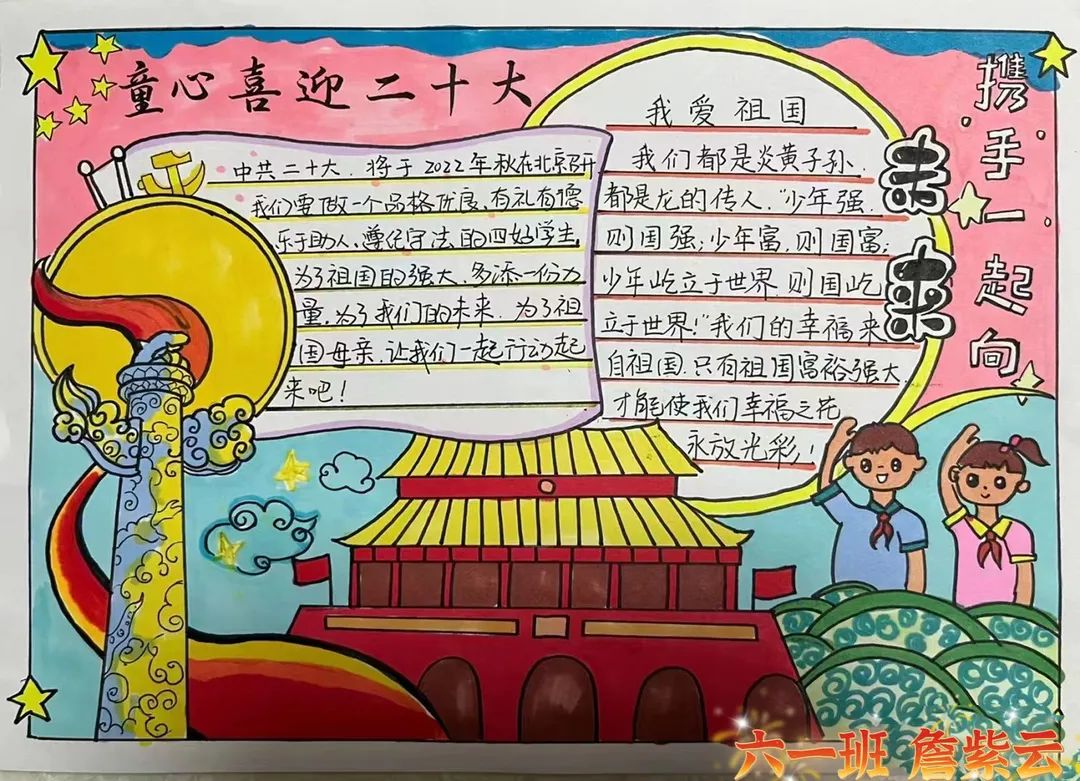 童心喜迎二十大
中共二十大.将于2022年秋在北京召开
我们要做一个品格优良、有礼有德
乐于助人、遵纪守法的四好学生
为了祖国的强大、多添一份力
量.为了我们的未来.为了祖
国母亲.让我们一起行动起
来吧！
我爱祖国
我们都是炎黄子孙.
都是龙的传人."少年强.
则国强;少年富.则国富;
少年屹立于世界.则国屹
立于世界!"我们的幸福来
自祖国.只有祖国富裕强大.
才能使我们幸福之花
永放光彩!
携手一起向
未来
六一班 詹紫云